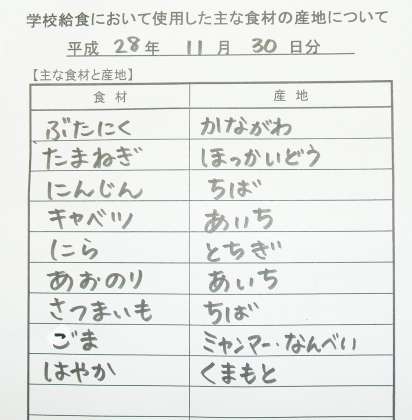 学校給食において使用した主な食材の産地について
平成 28 年 11 月 30 日分
【主な食材と産地】
食 材 産 地
ぶたにく かながわ
たまねぎ ほっかいどう
にんじん ちば
キャベツ あいち
にら とちぎ
あおのり あいち
さつまいも ちば
ごま ミャンマー・なんべい
はやか くまもと